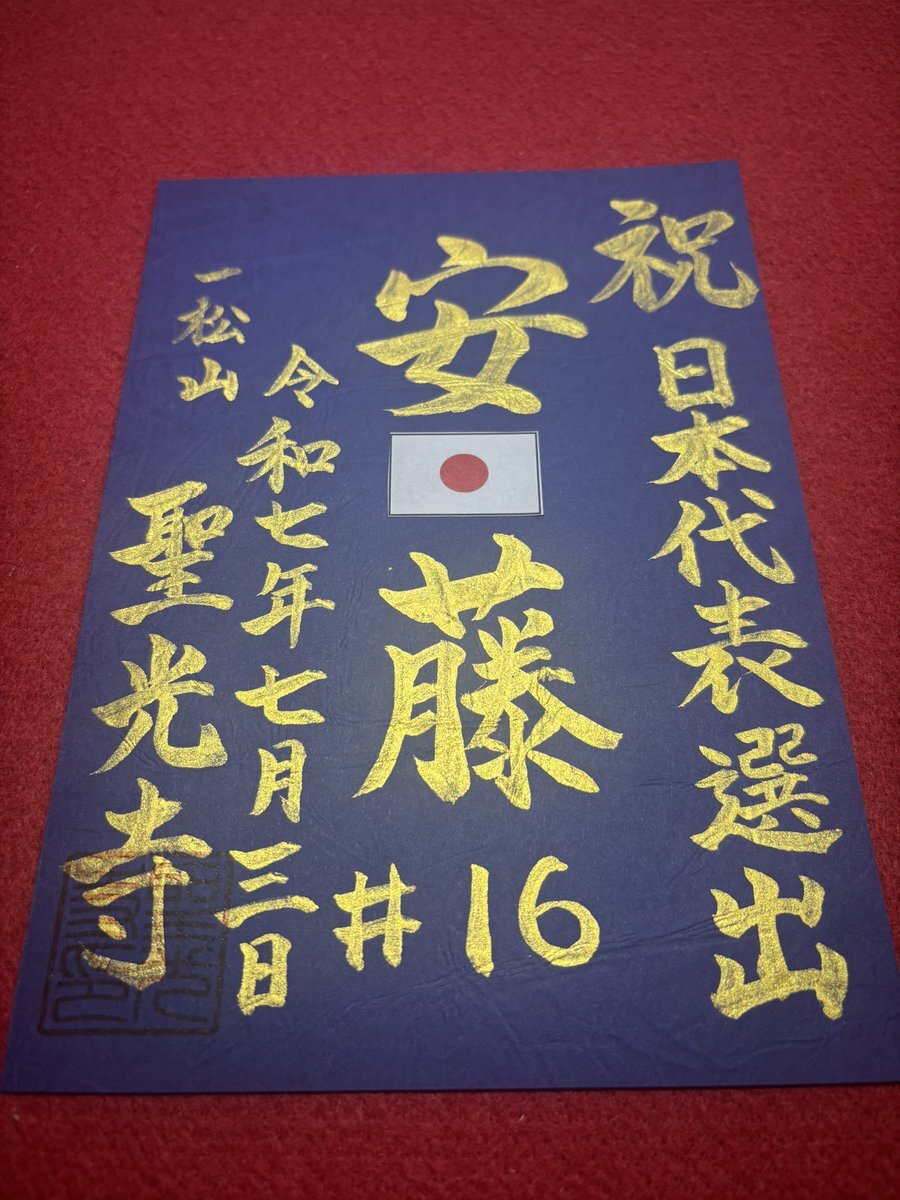 祝 日本代表選出
安藤
#16
令和七年七月三日
一松山 聖光寺